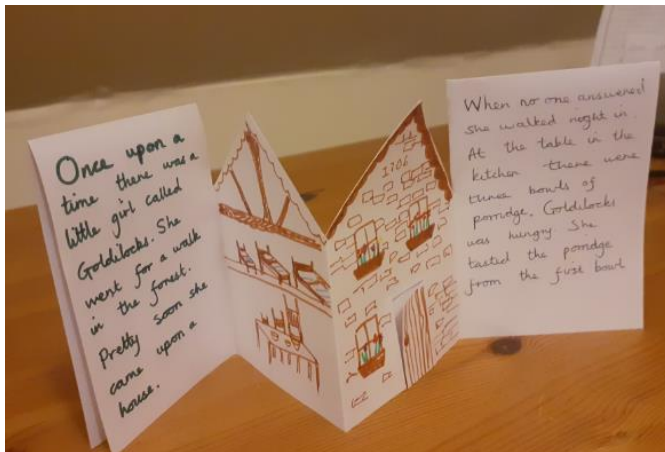 Once upon a
time there was a
little girl called
Goldilocks. She
went for a walk
in the forest.
Pretty soon she
came upon a
house.
1706
When no one answered
she walked right in.
At the table in the
kitchen there were
three bowls of
porridge. Goldilocks
was hungry She
tasted the porridge
from the first bowl